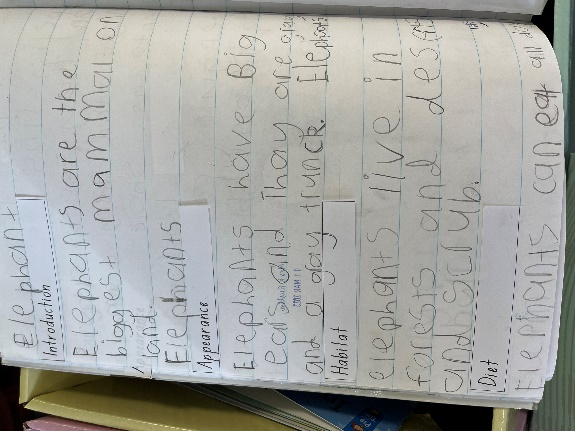 Elephant
Introduction
Elephants are the
biggest mammal on
land.
Elephants
Appearance
Elephants have Big
ears and Thay are
and a gay trunck. Elephants
Habitat
elephants live in
forests and desert
and scrub.
Diet
Elephants can eat all